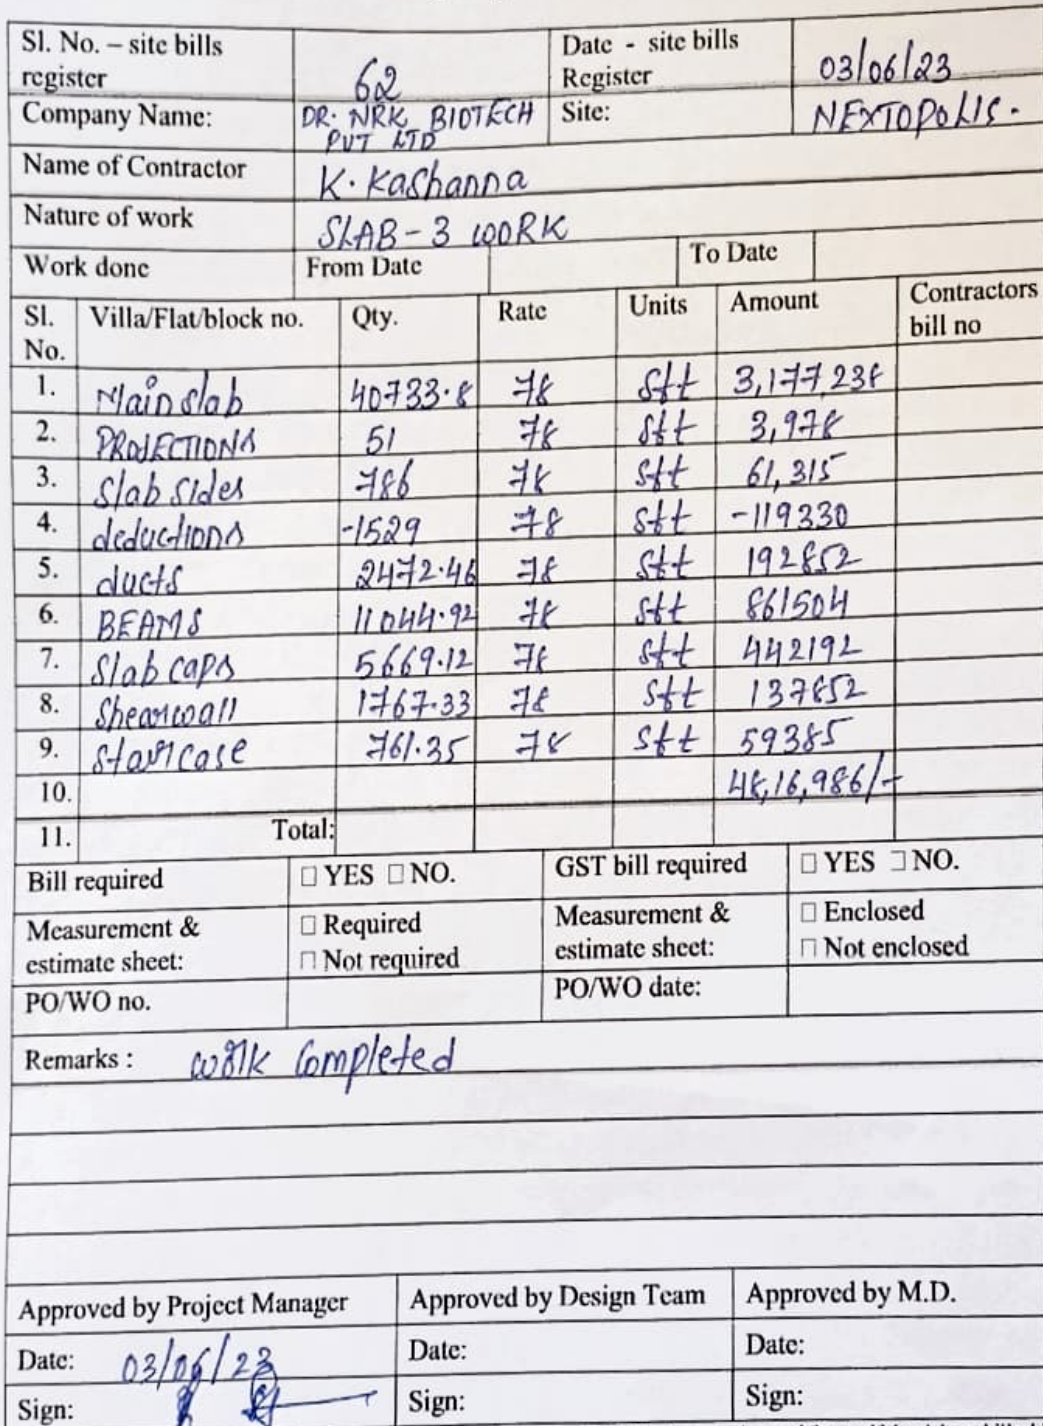 Sl. No. – site bills register 62 Date - site bills Register 03/06/23
Company Name: DR. NRK BIOTECH PVT LTD Site: NEXTOPOLIS.
Name of Contractor K. Kashanna
Nature of work SLAB-3 WORK
Work done From Date To Date
Sl. No. Villa/Flat/block no. Qty. Rate Units Amount Contractors bill no
1. Main slab 40733.8 78 sft 3,177,238
2. PROJECTIONS 51 78 sft 3,978
3. Slab sides 786 78 sft 61,315
4. deductions -1529 78 sft -119330
5. ducts 2472.46 78 sft 192852
6. BEAMS 11044.92 78 sft 861504
7. Slab caps 5669.12 78 sft 442192
8. Shearwall 1767.33 78 sft 137852
9. Staircase 761.35 78 sft 59385
10. 48,16,986/-
11. Total:
Bill required □ YES □ NO. GST bill required □ YES □ NO.
Measurement & estimate sheet: □ Required □ Not required Measurement & estimate sheet: □ Enclosed □ Not enclosed
PO/WO no. PO/WO date:
Remarks : work completed
Approved by Project Manager Approved by Design Team Approved by M.D.
Date: 03/06/23 Date: Date:
Sign: Sign: Sign: